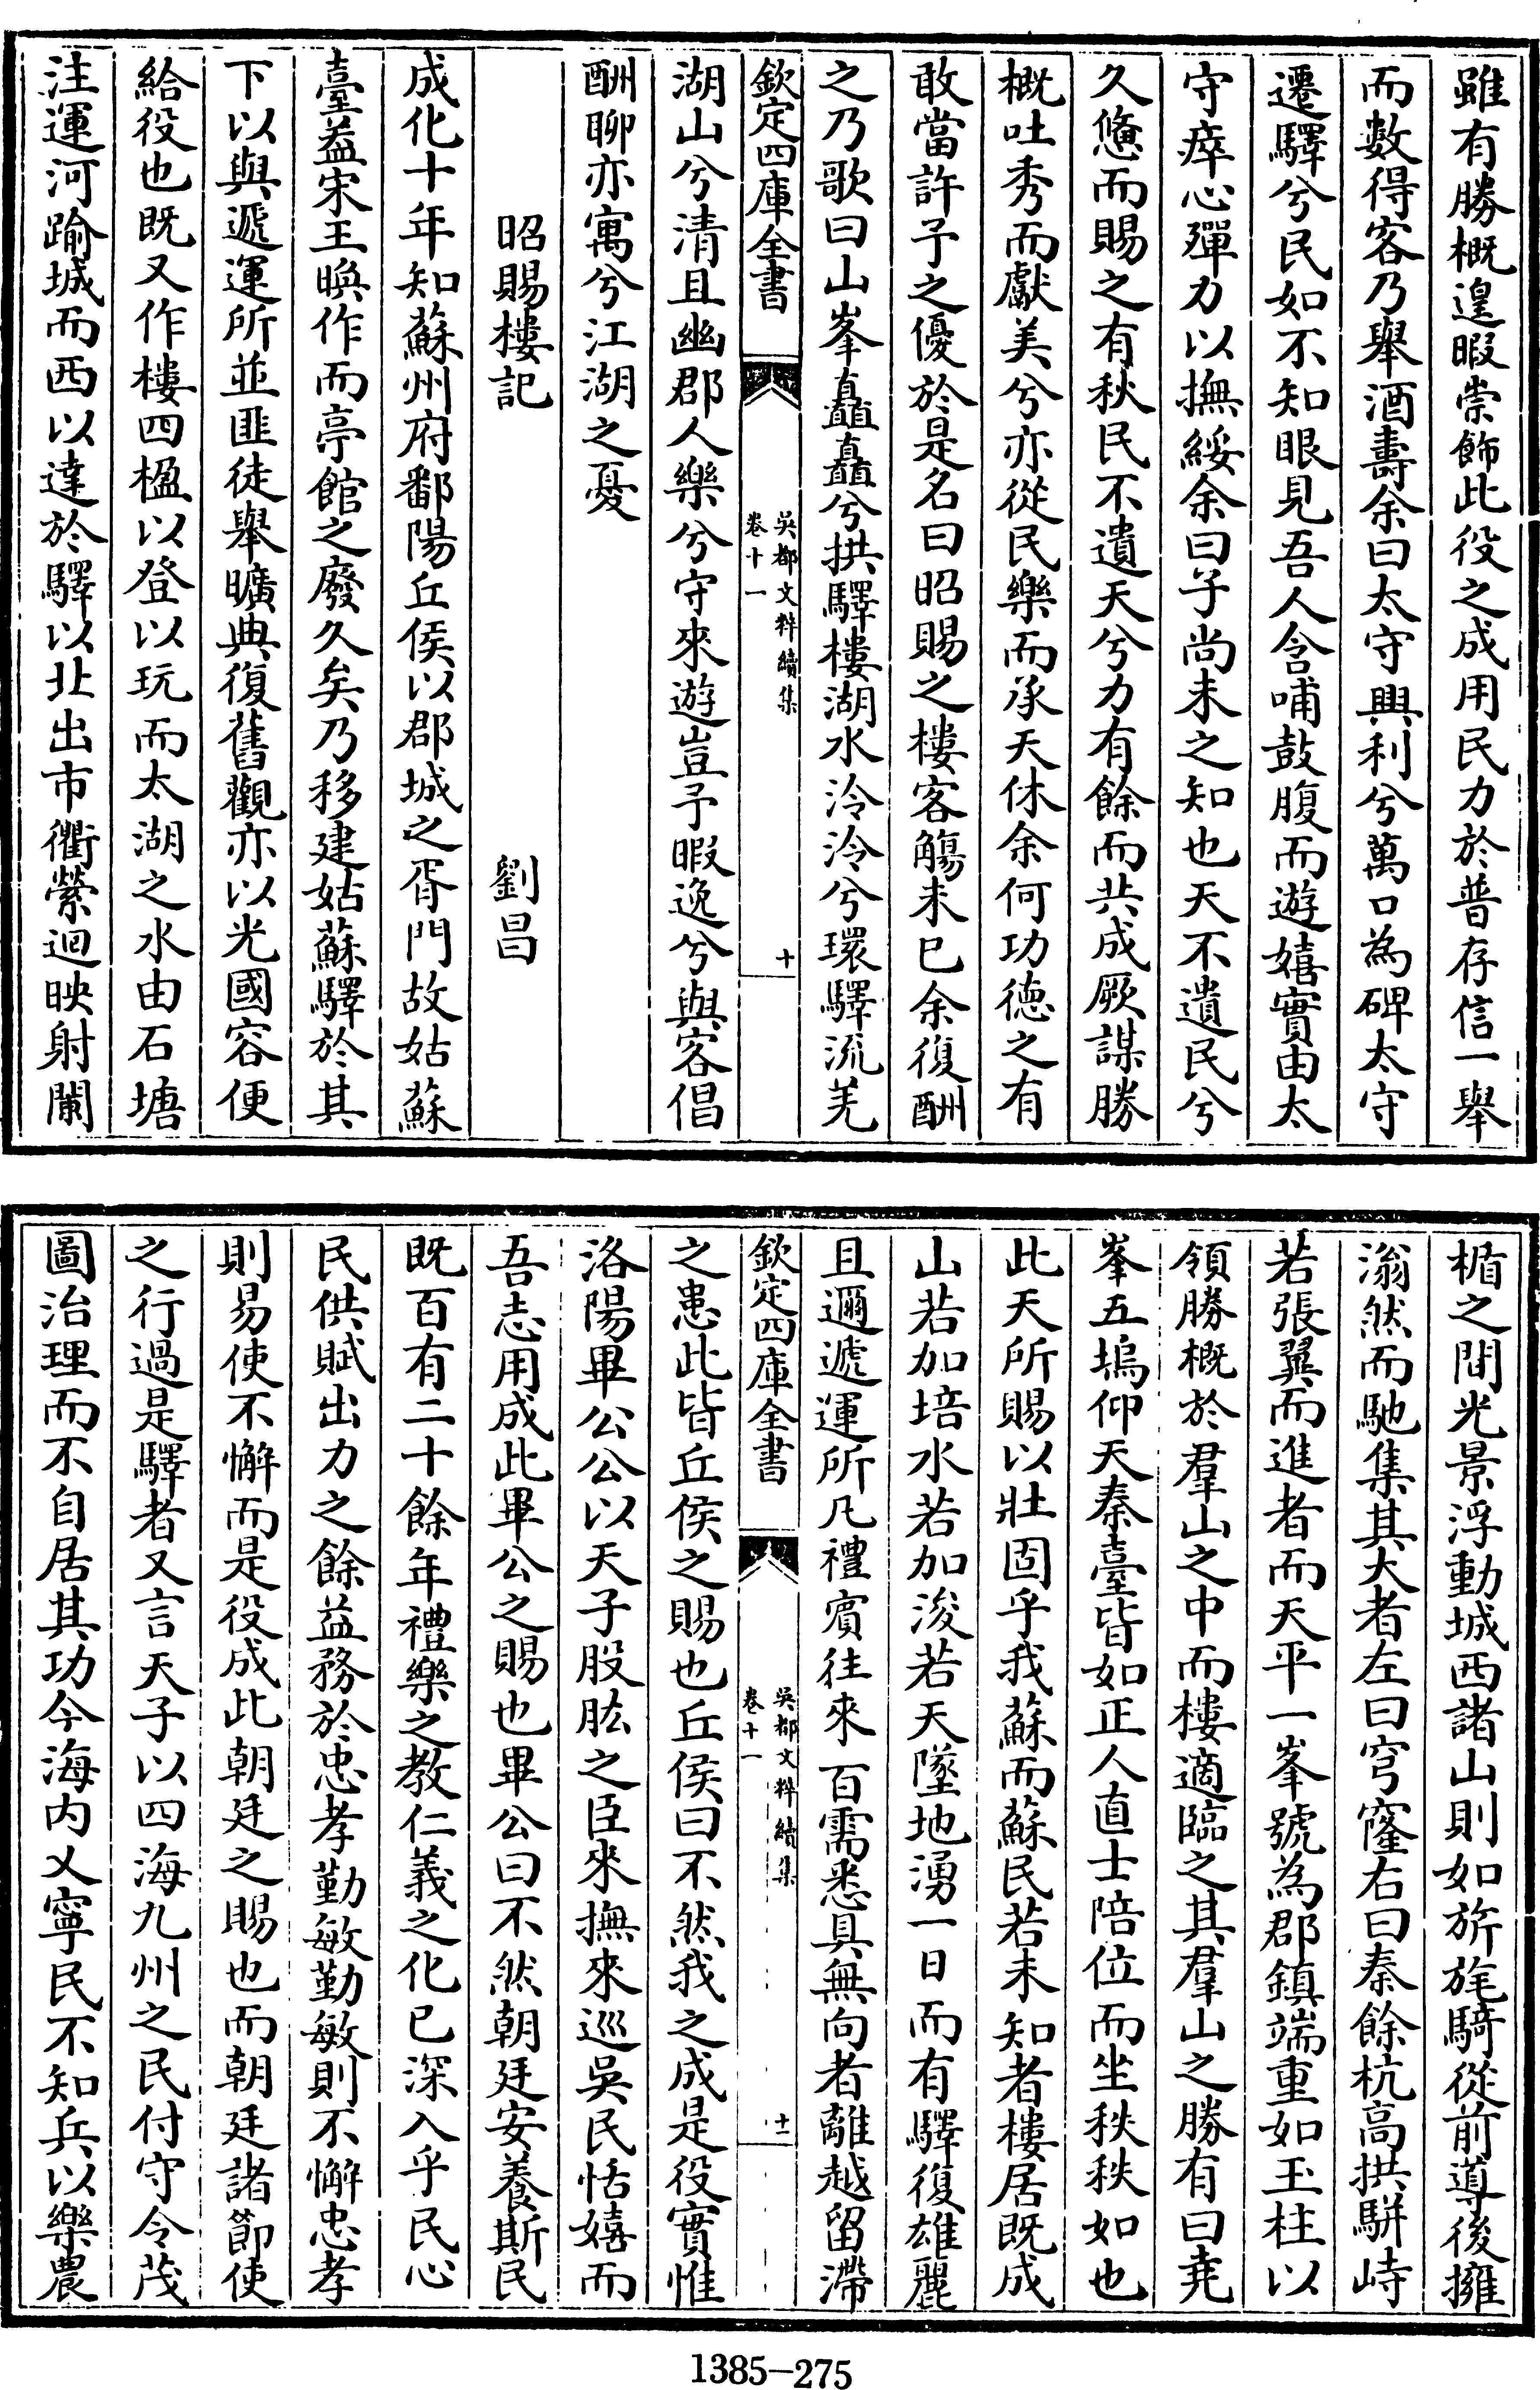 雖有勝概遑暇崇飾此役之成用民力於普存信一舉
而數得客乃舉酒壽余曰太守興利兮萬口為碑太守
遷驛兮民如不知眼見吾人含哺鼓腹而遊嬉實由太
守瘁心殫力以撫綏余曰子尚未之知也天不遺民兮
久憊而賜之有秋民不遺天兮力有餘而共成厥謀勝
概吐秀而獻美兮亦從民樂而承天休余何功德之有
敢當許予之優於是名曰昭賜之樓客觴未已余復酬
之乃歌曰山峯矗矗兮拱驛樓湖水泠泠兮環驛流羌
欽定四庫全書
吳都文粹續集
卷十一
十
湖山兮清且幽郡人樂兮守來遊豈予暇逸兮與客倡
酬聊亦寓兮江湖之憂
昭賜樓記 劉昌
成化十年知蘇州府鄱陽丘侯以郡城之胥門故姑蘇
臺葢宋王㬇作而亭館之廢久矣乃移建姑蘇驛於其
下以與遞運所並匪徒舉曠典復舊觀亦以光國容便
給役也既又作樓四楹以登以玩而太湖之水由石塘
注運河踰城而西以達於驛以北出市衢縈迴映射闌
楯之間光景浮動城西諸山則如旂旄騎從前導後擁
滃然而馳集其大者左曰穹窿右曰秦餘杭高拱駢峙
若張翼而進者而天平一峯號為郡鎮端重如玉柱以
領勝概於羣山之中而樓適臨之其羣山之勝有曰堯
峯五塢仰天秦臺皆如正人直士陪位而坐秩秩如也
此天所賜以壯固乎我蘇而蘇民若未知者樓居既成
山若加培水若加浚若天墜地湧一日而有驛復雄麗
且邇遞運所凡禮賓往來百需悉具無向者離越留滯
欽定四庫全書
吳都文粹續集
卷十一
十一
之患此皆丘侯之賜也丘侯曰不然我之成是役實惟
洛陽畢公公以天子股肱之臣來撫來巡吳民恬嬉而
吾志用成此畢公之賜也畢公曰不然朝廷安養斯民
既百有二十餘年禮樂之教仁義之化已深入乎民心
民供賦出力之餘益務於忠孝勤敏勤敏則不懈忠孝
則易使不懈而是役成此朝廷之賜也而朝廷諸節使
之行過是驛者又言天子以四海九州之民付守令茂
圖治理而不自居其功今海内乂寧民不知兵以樂農
1385-275